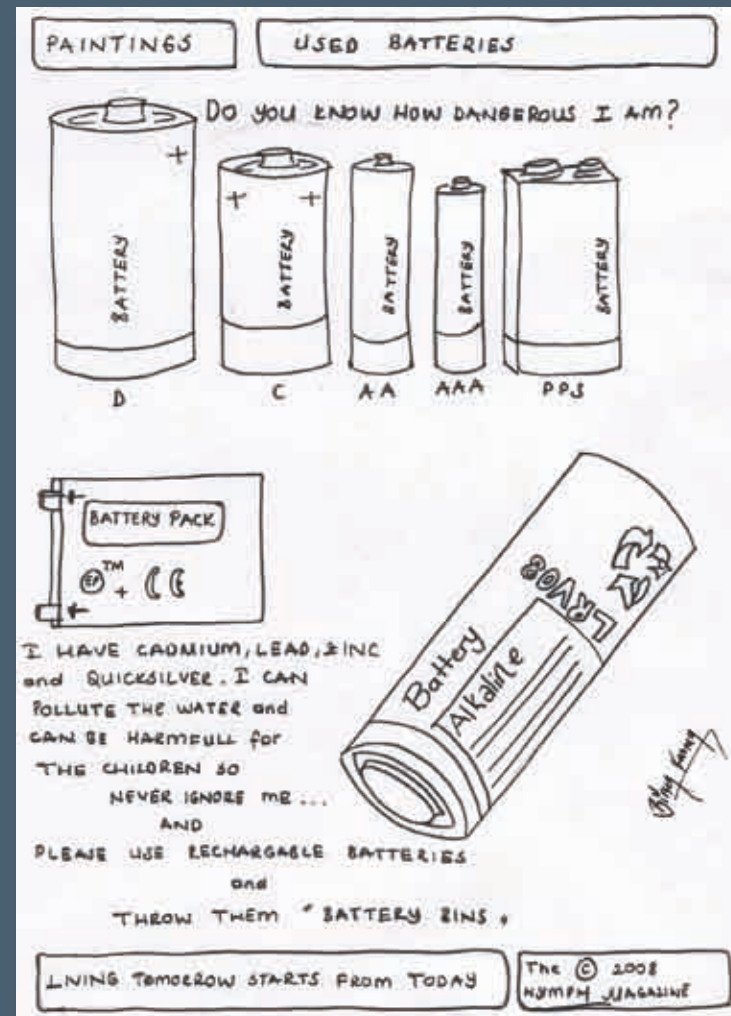 PAINTINGS
USED BATTERIES
DO YOU KNOW HOW DANGEROUS I AM?
BATTERY
BATTERY
BATTERY
BATTERY
BATTERY
D
C
AA
AAA
PPS
BATTERY PACK
EP TM + CE
LRV08
Battery
Alkaline
I HAVE CADMIUM, LEAD, ZINC
and QUICKSILVER. I CAN
POLLUTE THE WATER and
CAN BE HARMFULL for
THE CHILDREN SO
NEVER IGNORE ME...
AND
PLEASE USE RECHARGABLE BATTERIES
and
THROW THEM "BATTERY BINS.
LIVING TOMORROW STARTS FROM TODAY
The © 2008
NYMPH MAGAZINE